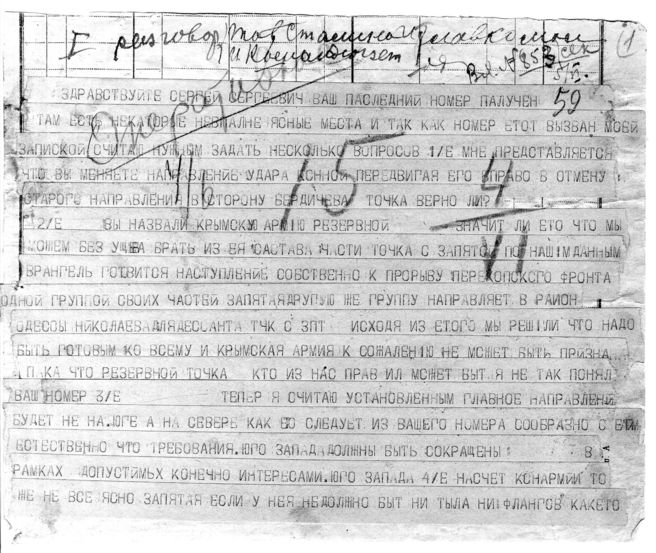 I разговор тов Сталина и Главкома
ЗДРАВСТВУЙТЕ СЕРГЕЙ СЕРГЕЕВИЧ ВАШ ПАСЛЕДНИЙ НОМЕР ПАЛУЧЕН 59
ТАМ ЕСТЬ НЕКАТОРЫЕ НЕВПАЛНЕ ЯСНЫЕ МЕСТА И ТАК КАК НОМЕР ЕТОТ ВЫЗВАН МОЕЙ
ЗАПИСКОЙ СЧИТАЮ НУЖНЫМ ЗАДАТЬ НЕСКОЛЬКО ВОПРОСОВ 1/Е МНЕ ПРЕДСТАВЛЯЕТСЯ
ЧТО ВЫ МЕНЯЕТЕ НАПРАВЛЕНИЕ УДАРА КОННОЙ ПЕРЕДВИГАЯ ЕГО ВПРАВО В ОТМЕНУ
СТАРОГО НАПРАВЛЕНИЯ В СТОРОНУ БЕРДИЧЕВА ТОЧКА ВЕРНО ЛИ?
2/Е ВЫ НАЗВАЛИ КРЫМСКУЮ АРМИЮ РЕЗЕРВНОЙ ЗНАЧИТ ЛИ ЕТО ЧТО МЫ
МОЖЕМ БЕЗ БРАТЬ ИЗ ЕЯ САСТАВА ЧАСТИ ТОЧКА С ЗАПЯТОЙ ПО НАШIМ ДАННЫМ
ВРАНГЕЛЬ ГОТВИТСЯ НАСТУПЛЕНИЕ СОБСТВЕННО К ПРОРЫВУ ПЕРЕКОПСКОГО ФРОНТА
ОДНОЙ ГРУППОЙ СВОИХ ЧАСТЕЙ ЗАПЯТАЯДРУГУЮ ЖЕ ГРУППУ НАПРАВЛЯЕТ В РАЙОН
ОДЕССЫ НИКОЛАЕВАДЛЯДЕССАНТА ТЧК С ЗПТ ИСХОДЯ ИЗ ЕТОГО МЫ РЕШIЛИ ЧТО НАДО
БЫТЬ ГОТОВЫМ КО ВСЕМУ И КРЫМСКАЯ АРМИЯ К СОЖАЛЕНIЮ НЕ МОЖЕТ БЫТЬ ПРИЗНА
А П КА ЧТО РЕЗЕРВНОЙ ТОЧКА КТО ИЗ НАС ПРАВ ИЛ МОЖЕТ БЫТ Я НЕ ТАК ПОНЯЛ
ВАШ НОМЕР 3/Е ТЕПЕР Я СЧИТАЮ УСТАНОВЛЕННЫМ ГЛАВНОЕ НАПРАВЛЕНИ
БУДЕТ НЕ НА.ЮГЕ А НА СЕВЕРЕ КАК СЛЕДУЕТ ИЗ ВАШЕГО НОМЕРА СООБРАЗНО С
ЕСТЕСТВЕННО ЧТО ТРЕБОВАНИЯ.ЮГО ЗАПАДАДОЛЖНЫ БЫТЬ СОКРАЩЕНЫ В
РАМКАХ ДОПУСТИМЬХ КОНЕЧНО ИНТЕРЕСАМИ.ЮГО ЗАПАДА 4/Е НАСЧЕТ КСНАРМИИ ТО
ЖЕ НЕ ВСЕ ЯСНО ЗАПЯТАЯ ЕСЛИ У НЕЯ НЕДОЛЖНО БЫТ НИ ТЫЛА НИ ФЛАНГОВ КАКЕТО